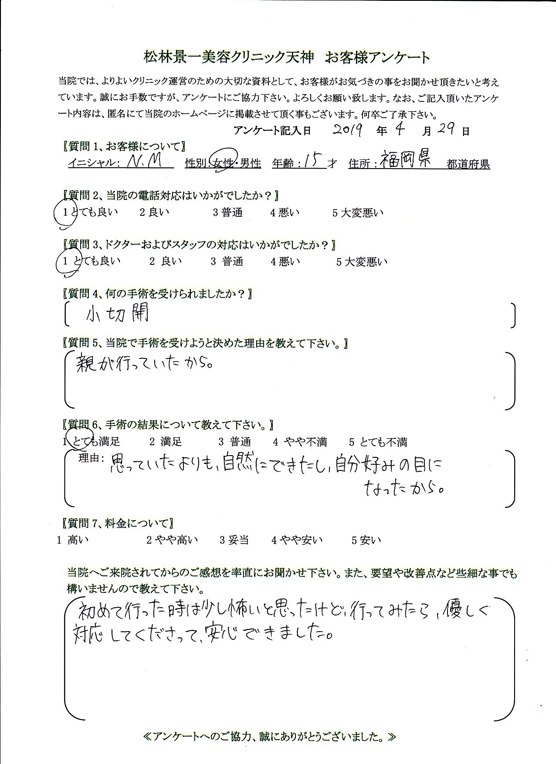 松林景一美容クリニック天神 お客様アンケート
当院では、よりよいクリニック運営のための大切な資料として、お客様がお気づきの事をお聞かせ頂きたいと考え
ています。誠にお手数ですが、アンケートにご協力下さい。よろしくお願い致します。なお、ご記入頂いたアンケ
ート内容は、匿名にて当院のホームページに掲載させて頂く事もございます。何卒ご了承下さい。
アンケート記入日 2019 年 4 月 29 日
〖質問1、お客様について〗
イニシャル: N.M 性別 女性・男性 年齢:15才 住所:福岡県 都道府県
〖質問2、当院の電話対応はいかがでしたか?〗
1とても良い 2良い 3普通 4悪い 5大変悪い
〖質問3、ドクターおよびスタッフの対応はいかがでしたか?〗
1とても良い 2良い 3普通 4悪い 5大変悪い
〖質問4、何の手術を受けられましたか?〗
小切開
〖質問5、当院で手術を受けようと決めた理由を教えて下さい。〗
親が行っていたから。
〖質問6、手術の結果について教えて下さい。〗
1とても満足 2満足 3普通 4やや不満 5とても不満
理由: 思っていたよりも、自然にできたし、自分好みの目に
なったから。
〖質問7、料金について〗
1高い 2やや高い 3妥当 4やや安い 5安い
当院へご来院されてからのご感想を率直にお聞かせ下さい。また、要望や改善点など些細な事でも
構いませんので教えて下さい。
初めて行った時は少し怖いと思ったけど、行ってみたら、優しく
対応してくださって、安心できました。
≪アンケートへのご協力、誠にありがとうございました。≫